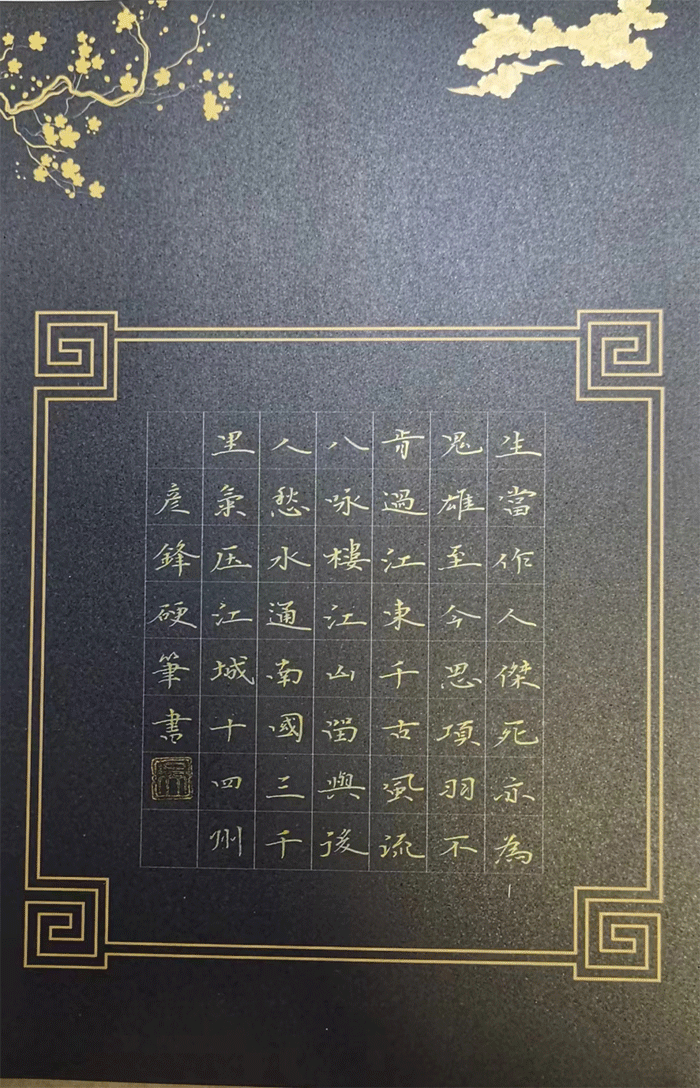 生當作人傑死亦為
鬼雄至今思項羽不
肯過江東千古風流
八咏樓江山留與後
人愁水通南國三千
里氣压江城十四州
彦鋒硬筆書